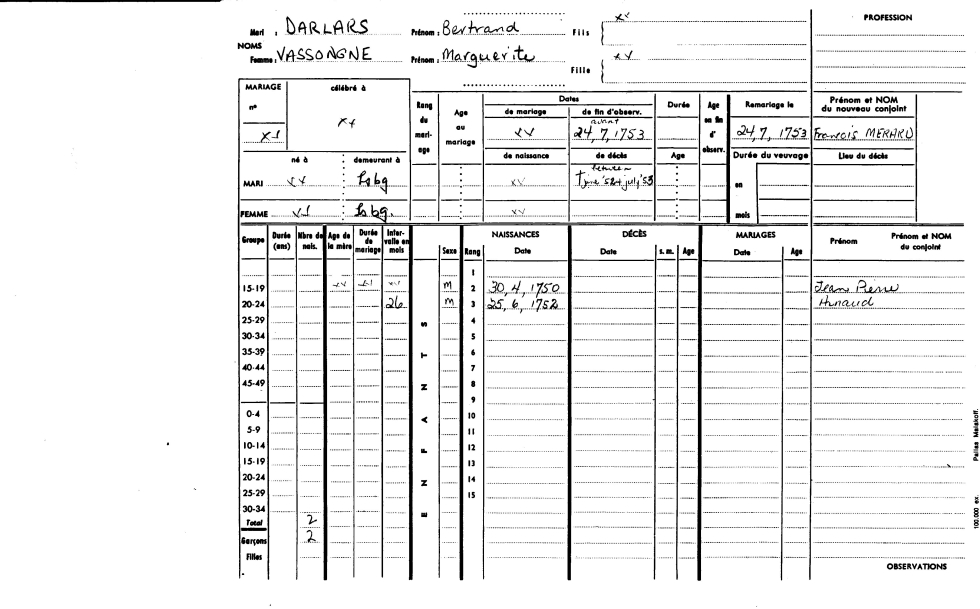 Mari : DARLARS Prénom : Bertrand Fils { xx
NOMS
Femme : VASSONGNE Prénom : Marguerite Fille { xx
PROFESSION
MARIAGE célébré à
nº
xx xx
Rang du mariage
Age au mariage
Dates
de mariage de fin d'observ.
xx avant 24, 7, 1753
Durée
Age en fin d' observ.
Remariage le
24, 7, 1753
Prénom et NOM du nouveau conjoint
François MERARD
né à demeurant à
de naissance de décès Age
Durée du veuvage Lieu du décès
MARI xx Lsbg xx between † june '52 + july '53
en
FEMME xx Lsbg. xx
mois
Groupe Durée (ans) Nbre de nais. Age de la mère Durée de mariage Intervalle en mois Sexe Rang
NAISSANCES Date
DÉCÈS Date s. m. Age
MARIAGES Date Age
Prénom Prénom et NOM du conjoint
1
15-19 xx xx xx M 2 30, 4, 1750 Jean Pierre
20-24 26 M 3 25, 6, 1752 Arnaud
25-29 4
30-34 5
35-39 6
40-44 7
45-49 8
9
0-4 10
5-9 11
10-14 12
15-19 13
20-24 14
25-29 15
30-34
Total 2
Garçons 2
Filles
ENFANTS
OBSERVATIONS
100.000 ex. Pallas Malakoff.